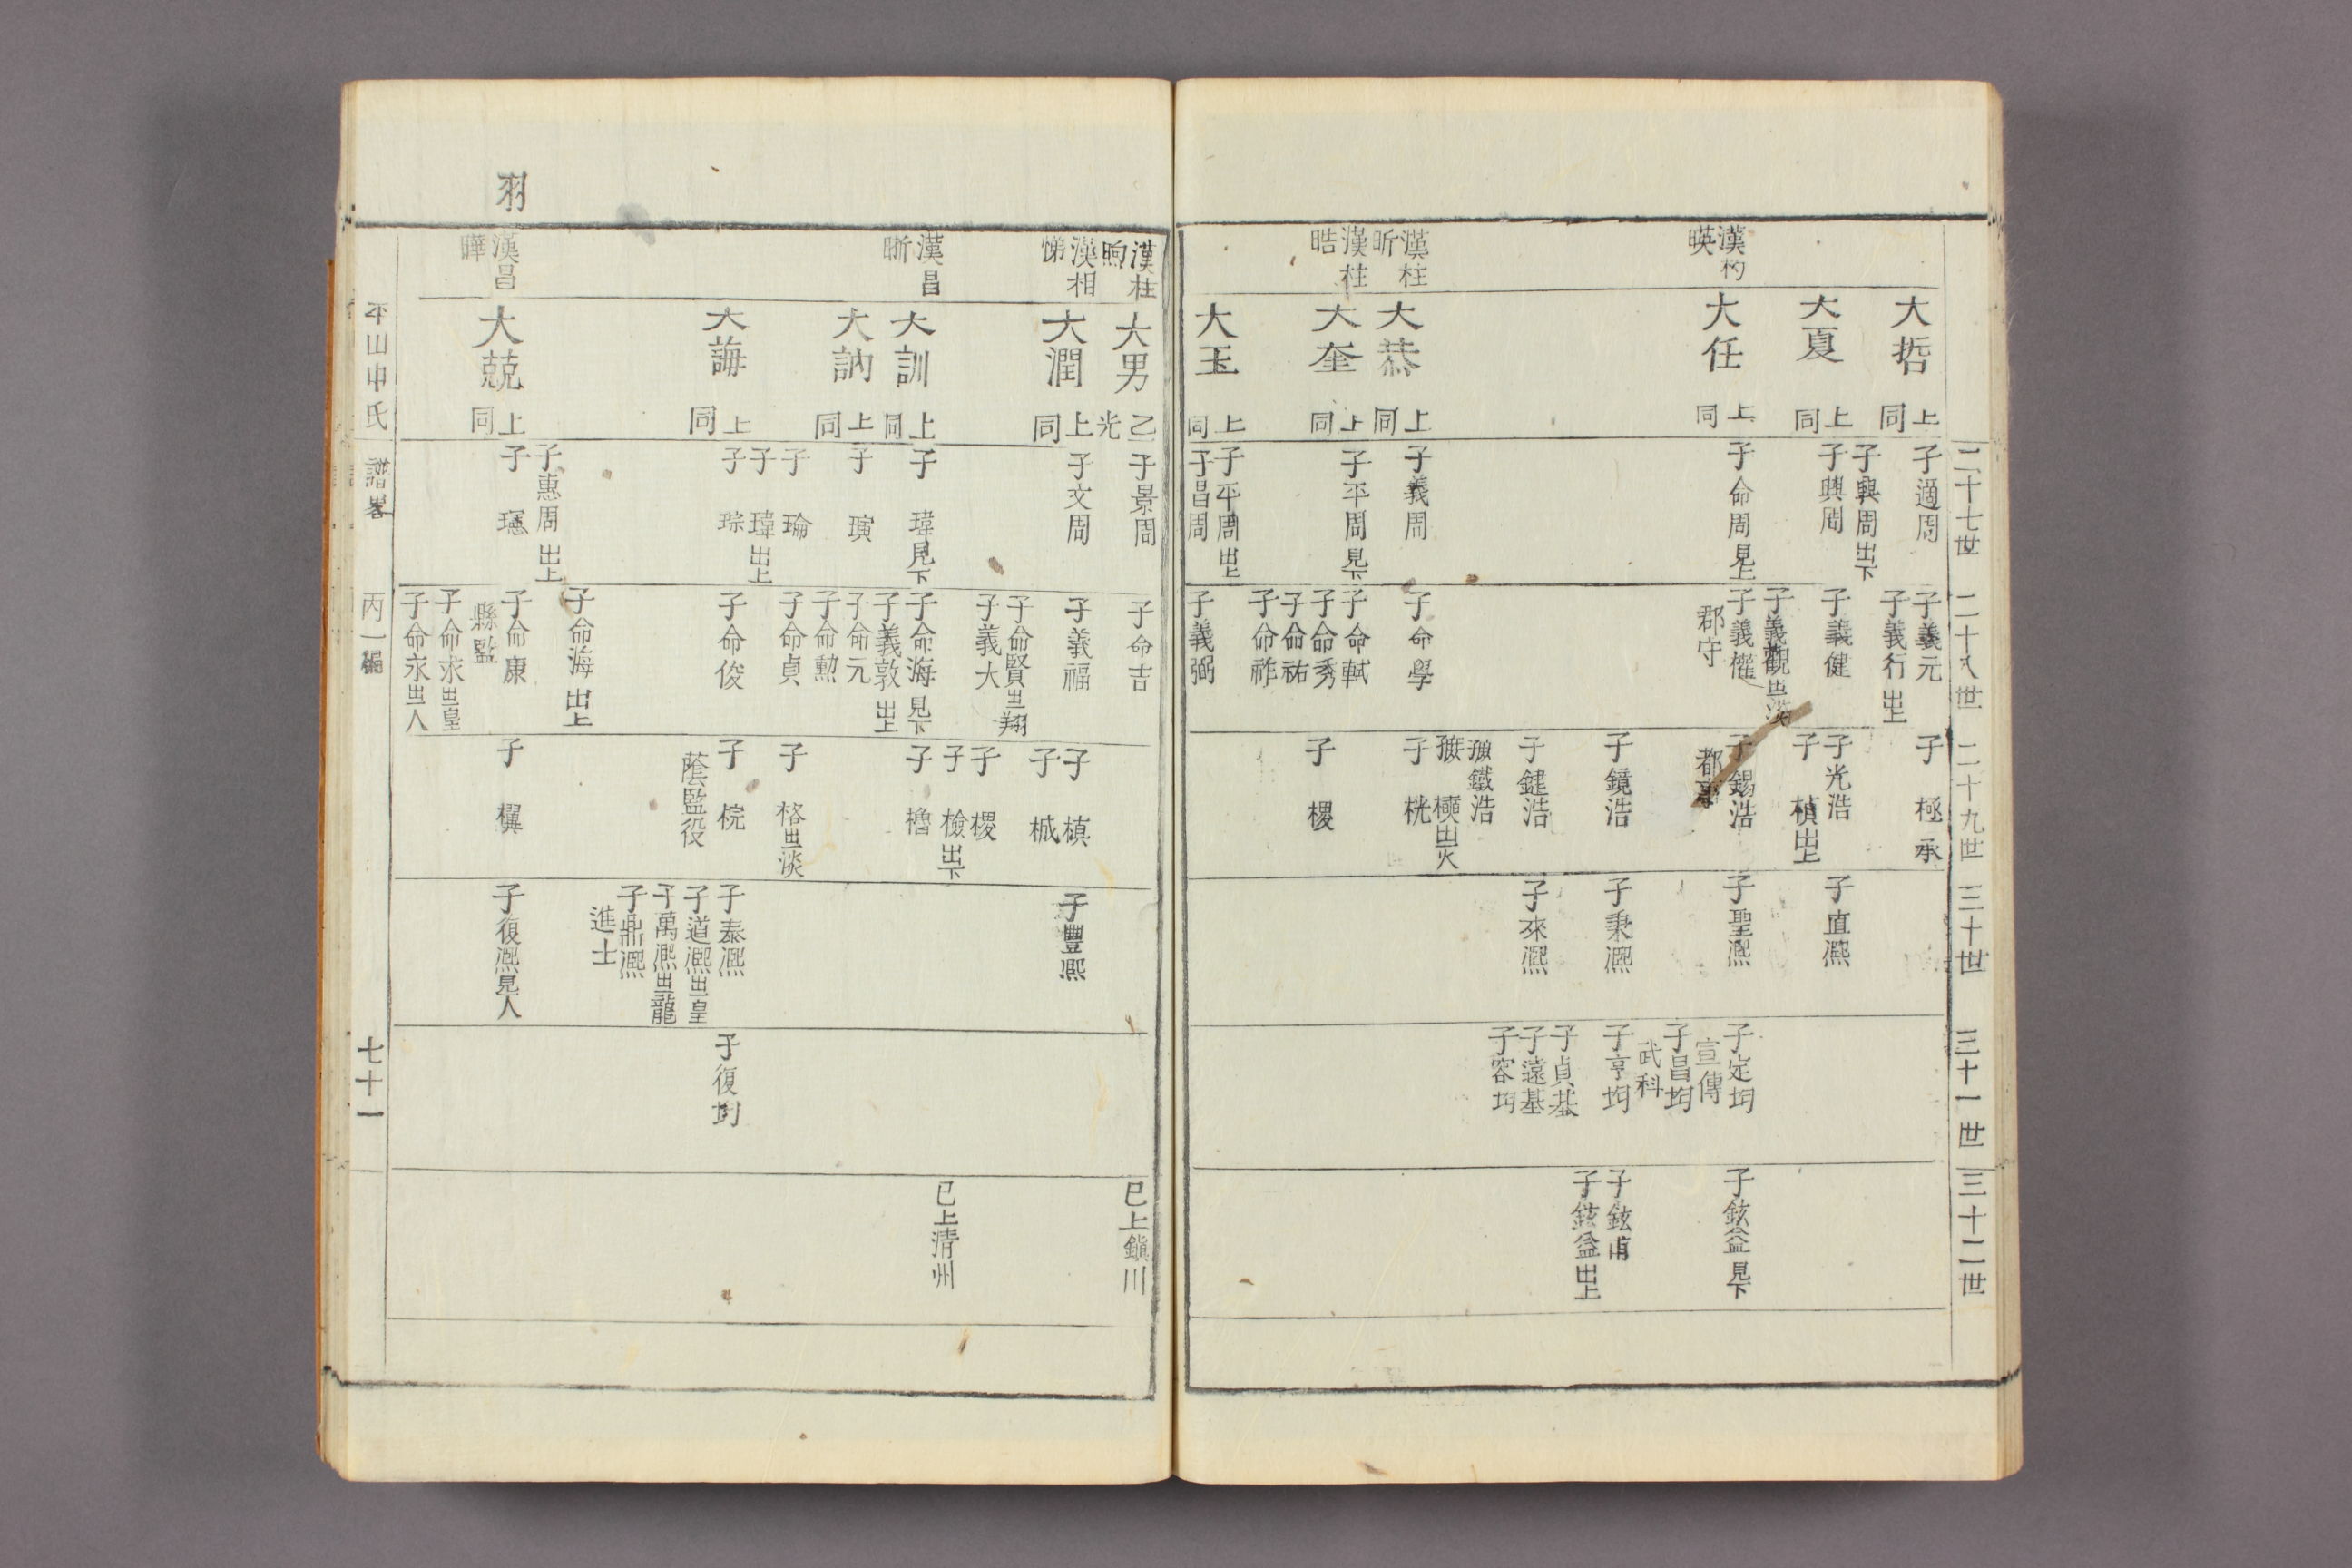 二十七世
二十八世
二十九世
三十世
三十一世
三十二世
漢杓
暎
漢柱
昕
漢柱
晧
大哲
上同
大夏
上同
大任
上同
大恭
上同
大奎
上同
大玉
上同
子適周
子興周出下
子興周
子命周見上
子義周
子平周見下
子平周出上
子昌周
子義元
子義行出上
子義健
子義觀出淡
子義權
郡守
子命學
子命軾
子命秀
子命祐
子命祚
子義弼
子極承
子光浩
子楨出上
子錫浩
都事
子鏡浩
子鍵浩
鐵浩
子桄
子㮨
子直凞
子聖凞
子秉凞
子來凞
子定均
宣傳
子昌均
武科
子亨均
子貞基
子遠基
子容均
子鉉益見下
子鉉甫
子鉉益出上
漢柱
昫
漢相
悌
漢昌
晣
漢昌
曄
羽
大男
乙光
大潤
上同
大訓
上同
大訥
上同
大誨
上同
大兢
上同
子景周
子文周
子瑋見下
子璌
子瑜
子瑋出上
子琮
子惠周出上
子瑻
子命吉
子義福
子命賢出翔
子義大
子命海見下
子義敦出上
子命元
子命勳
子命貞
子命俊
子命海出上
子命康
縣監
子命求出皇
子命永出人
子槙
子椷
子㮨
子檢出下
子櫓
子格出淡
子梡
蔭監役
子㯺
子豐凞
子泰凞
子道凞出皇
子萬凞出龍
子鼎凞
進士
子復凞見人
子復均
已上鎭川
已上淸州
平山申氏
譜畧
丙一編
七十一